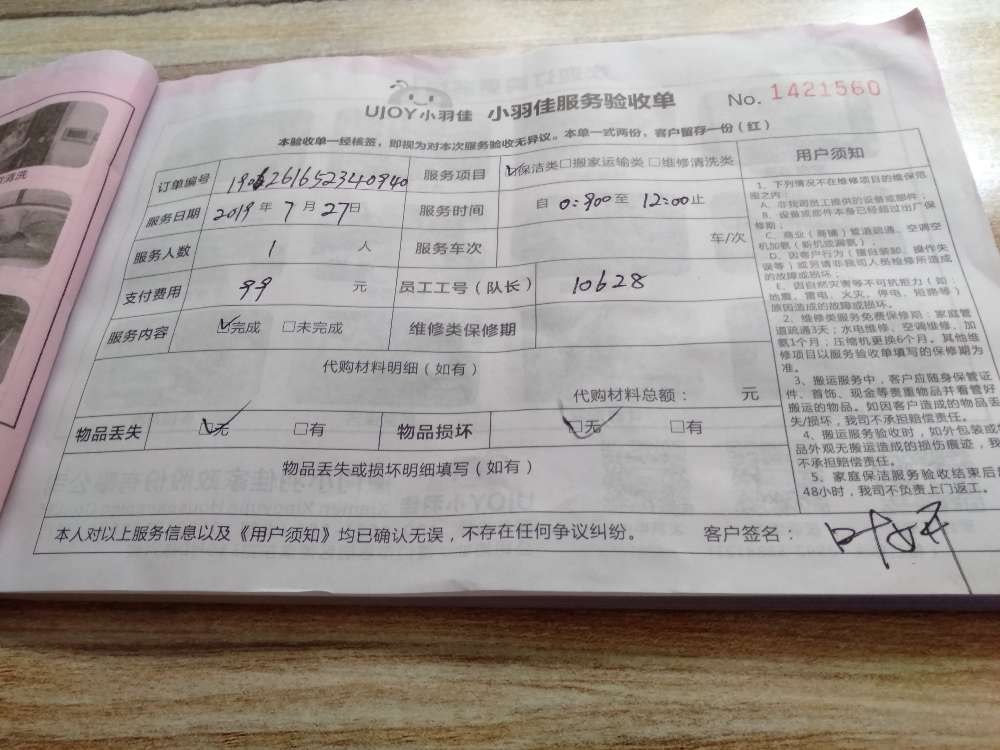 UJOY小羽佳 小羽佳服务验收单 No. 1421560
本验收单一经核签，即视为对本次服务验收无异议。本单一式两份，客户留存一份（红）
订单编号 服务项目 ☑保洁类□搬家运输类□维修清洗类
服务日期 2019年 7月 27日 服务时间 自 至 12:00止
服务人数 1 人 服务车次 车/次
支付费用 99 元 员工工号（队长） 10628
服务内容 ☑完成 □未完成 维修类保修期
代购材料明细（如有）
代购材料总额： 元
物品丢失 ☑无 □有 物品损坏 ☑无 □有
物品丢失或损坏明细填写（如有）
本人对以上服务信息以及《用户须知》均已确认无误，不存在任何争议纠纷。 客户签名：
用户须知
1、下列情况不在维修项目的维保范
围之内：
A、非我司员工提供的设备或部件；
B、设备或部件本身已经超过出厂保
修期；
C、商业（商铺）管道疏通、空调空
机加氨（新机或漏氨）；
D、因客户行为（擅自装卸、操作失
误等）或另请非我司人员检修所造成
的故障或损坏；
E、因自然灾害等不可抗拒力（如：
地震、雷电、火灾、停电、短路等）
原因造成的故障或损坏。
2、维修类服务免费保修期：家庭管
道疏通3天；水电维修、空调维修、加
氨1个月；压缩机更换6个月。其他维
修项目以服务验收单填写的保修期为
准。
3、搬运服务中，客户应随身保管证
件、首饰、现金等贵重物品并看管好
搬运的物品。如因客户造成的物品丢
失/损坏，我司不承担赔偿责任。
4、搬运服务验收时，如外包装或
品外观无搬运造成的损伤痕迹，我
不承担赔偿责任。
5、家庭保洁服务验收结束后
48小时，我司不负责上门返工。